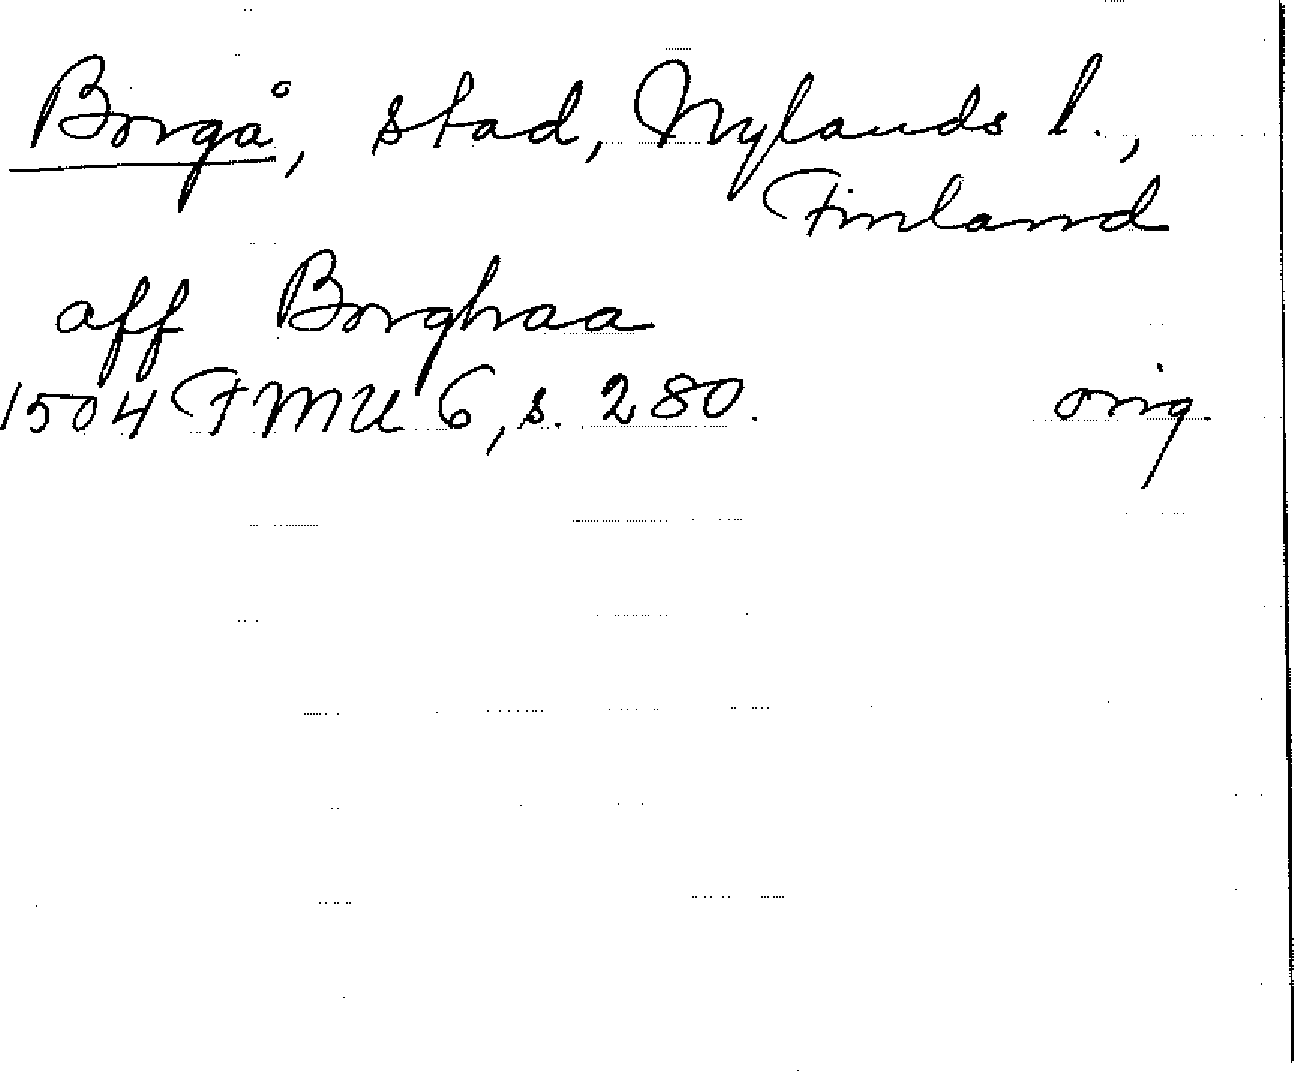 Borgå, stad, Nylands l.,
Finland
aff Borghaa
1504 FMU 6, s. 280. orig.